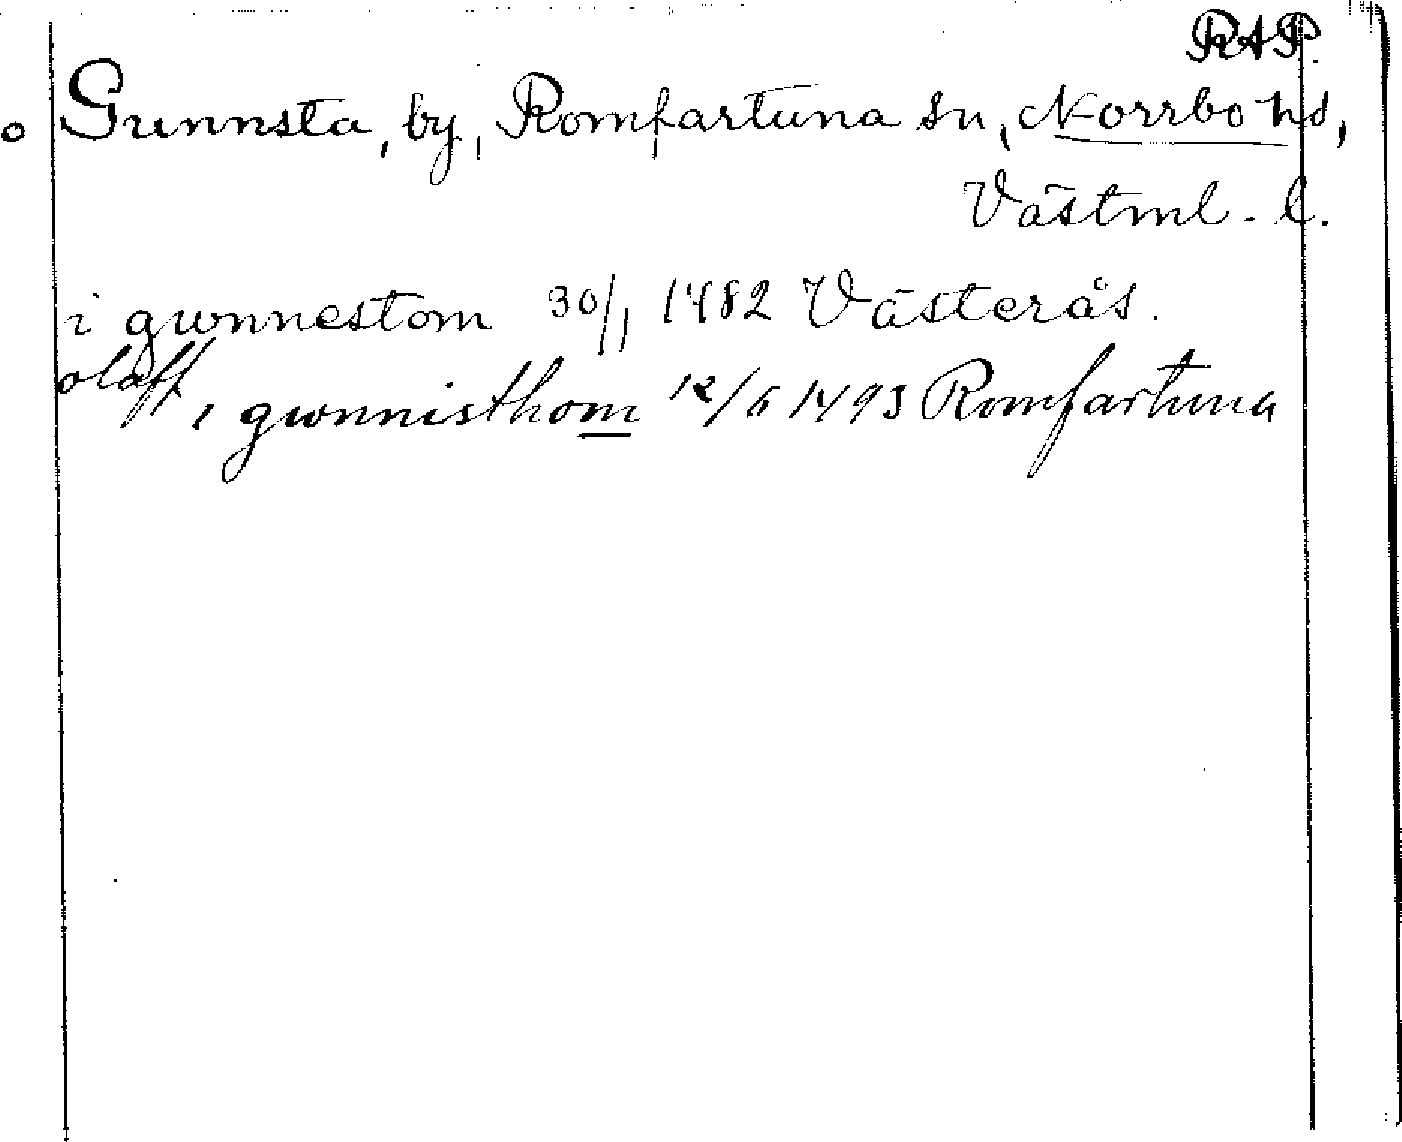 RAP.
o Gunnsta, by, Romfartuna sn, Norrbo hd,
Västml. l.
i gwnnestom 30/1 1482 Västerås.
olaff i gwnnisthom 12/6 1493 Romfartuna